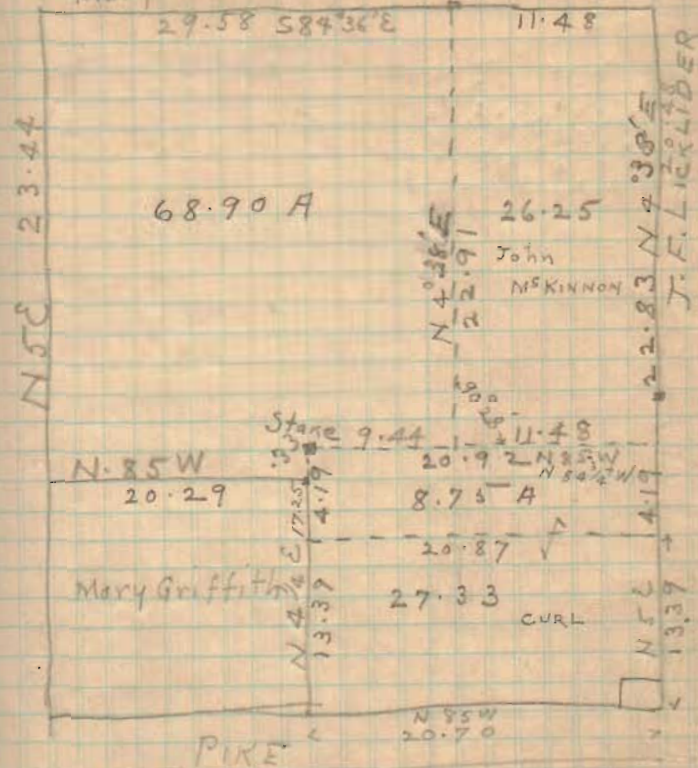 29.58 S84°36'E
11.48
N 5 E 23.44
68.90 A
N 4°38'E
22.91
26.25
John
McKINNON
22.83 N 4°38'E
J.F. LICKLIDER
Stake 9.44
11.48
.33
N. 85 W
20.29
20.92 N 85 W
8.75 A
4.19
4.19
17.25
20.87
Mary Griffith
N 4 1/4 E
13.39
27.33
CURL
N 5 E
13.39
N 85 W
20.70
PIKE